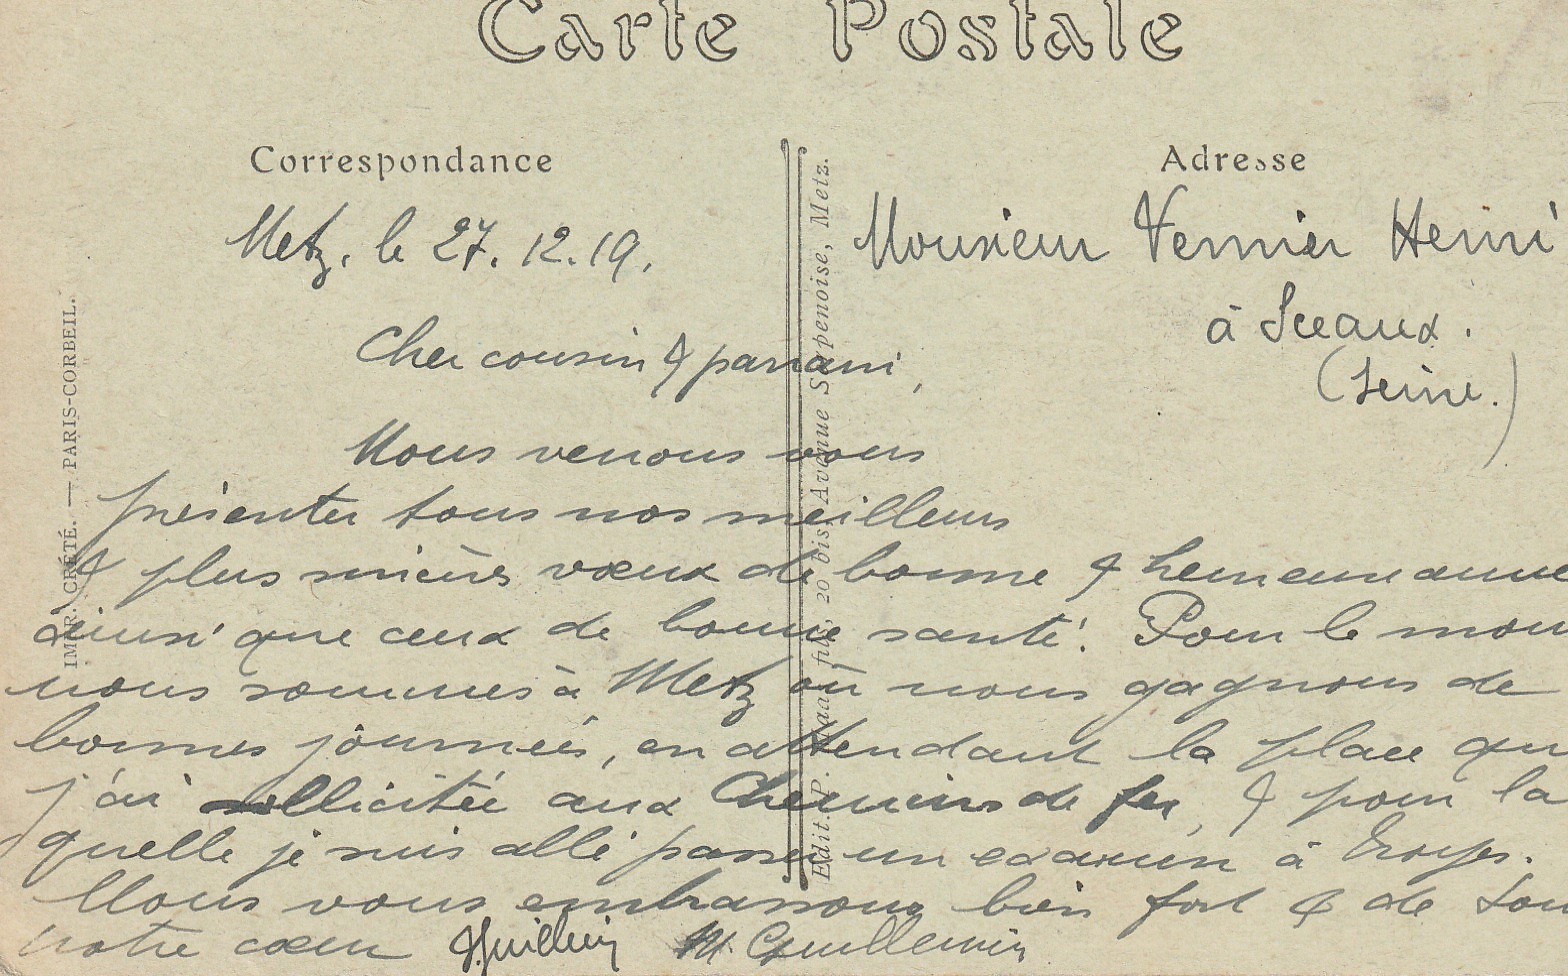 Carte Postale
Correspondance
Metz, le 27.12.19.
Cher cousin & parrain,
Nous venons vous
présenter tous nos meilleurs
& plus sincères vœux de bonne & heureuse année
ainsi que ceux de bonne santé. Pour le mom
nous sommes à Metz où nous gagnons de
bonnes journées, en attendant la place qu
j'ai sollicitée aux Chemins de fer, & pour la
quelle je suis allé passer un examen à Troyes.
Nous vous embrassons bien fort & de tou
notre cœur Guillemin M. Guillemin
Adresse
Monsieur Vernier Henri
à Sceaux.
(Seine.)
IMPR. CRÉTÉ. — PARIS-CORBEIL.
Edit. P. fils, 20 bis Avenue Serpenoise, Metz.